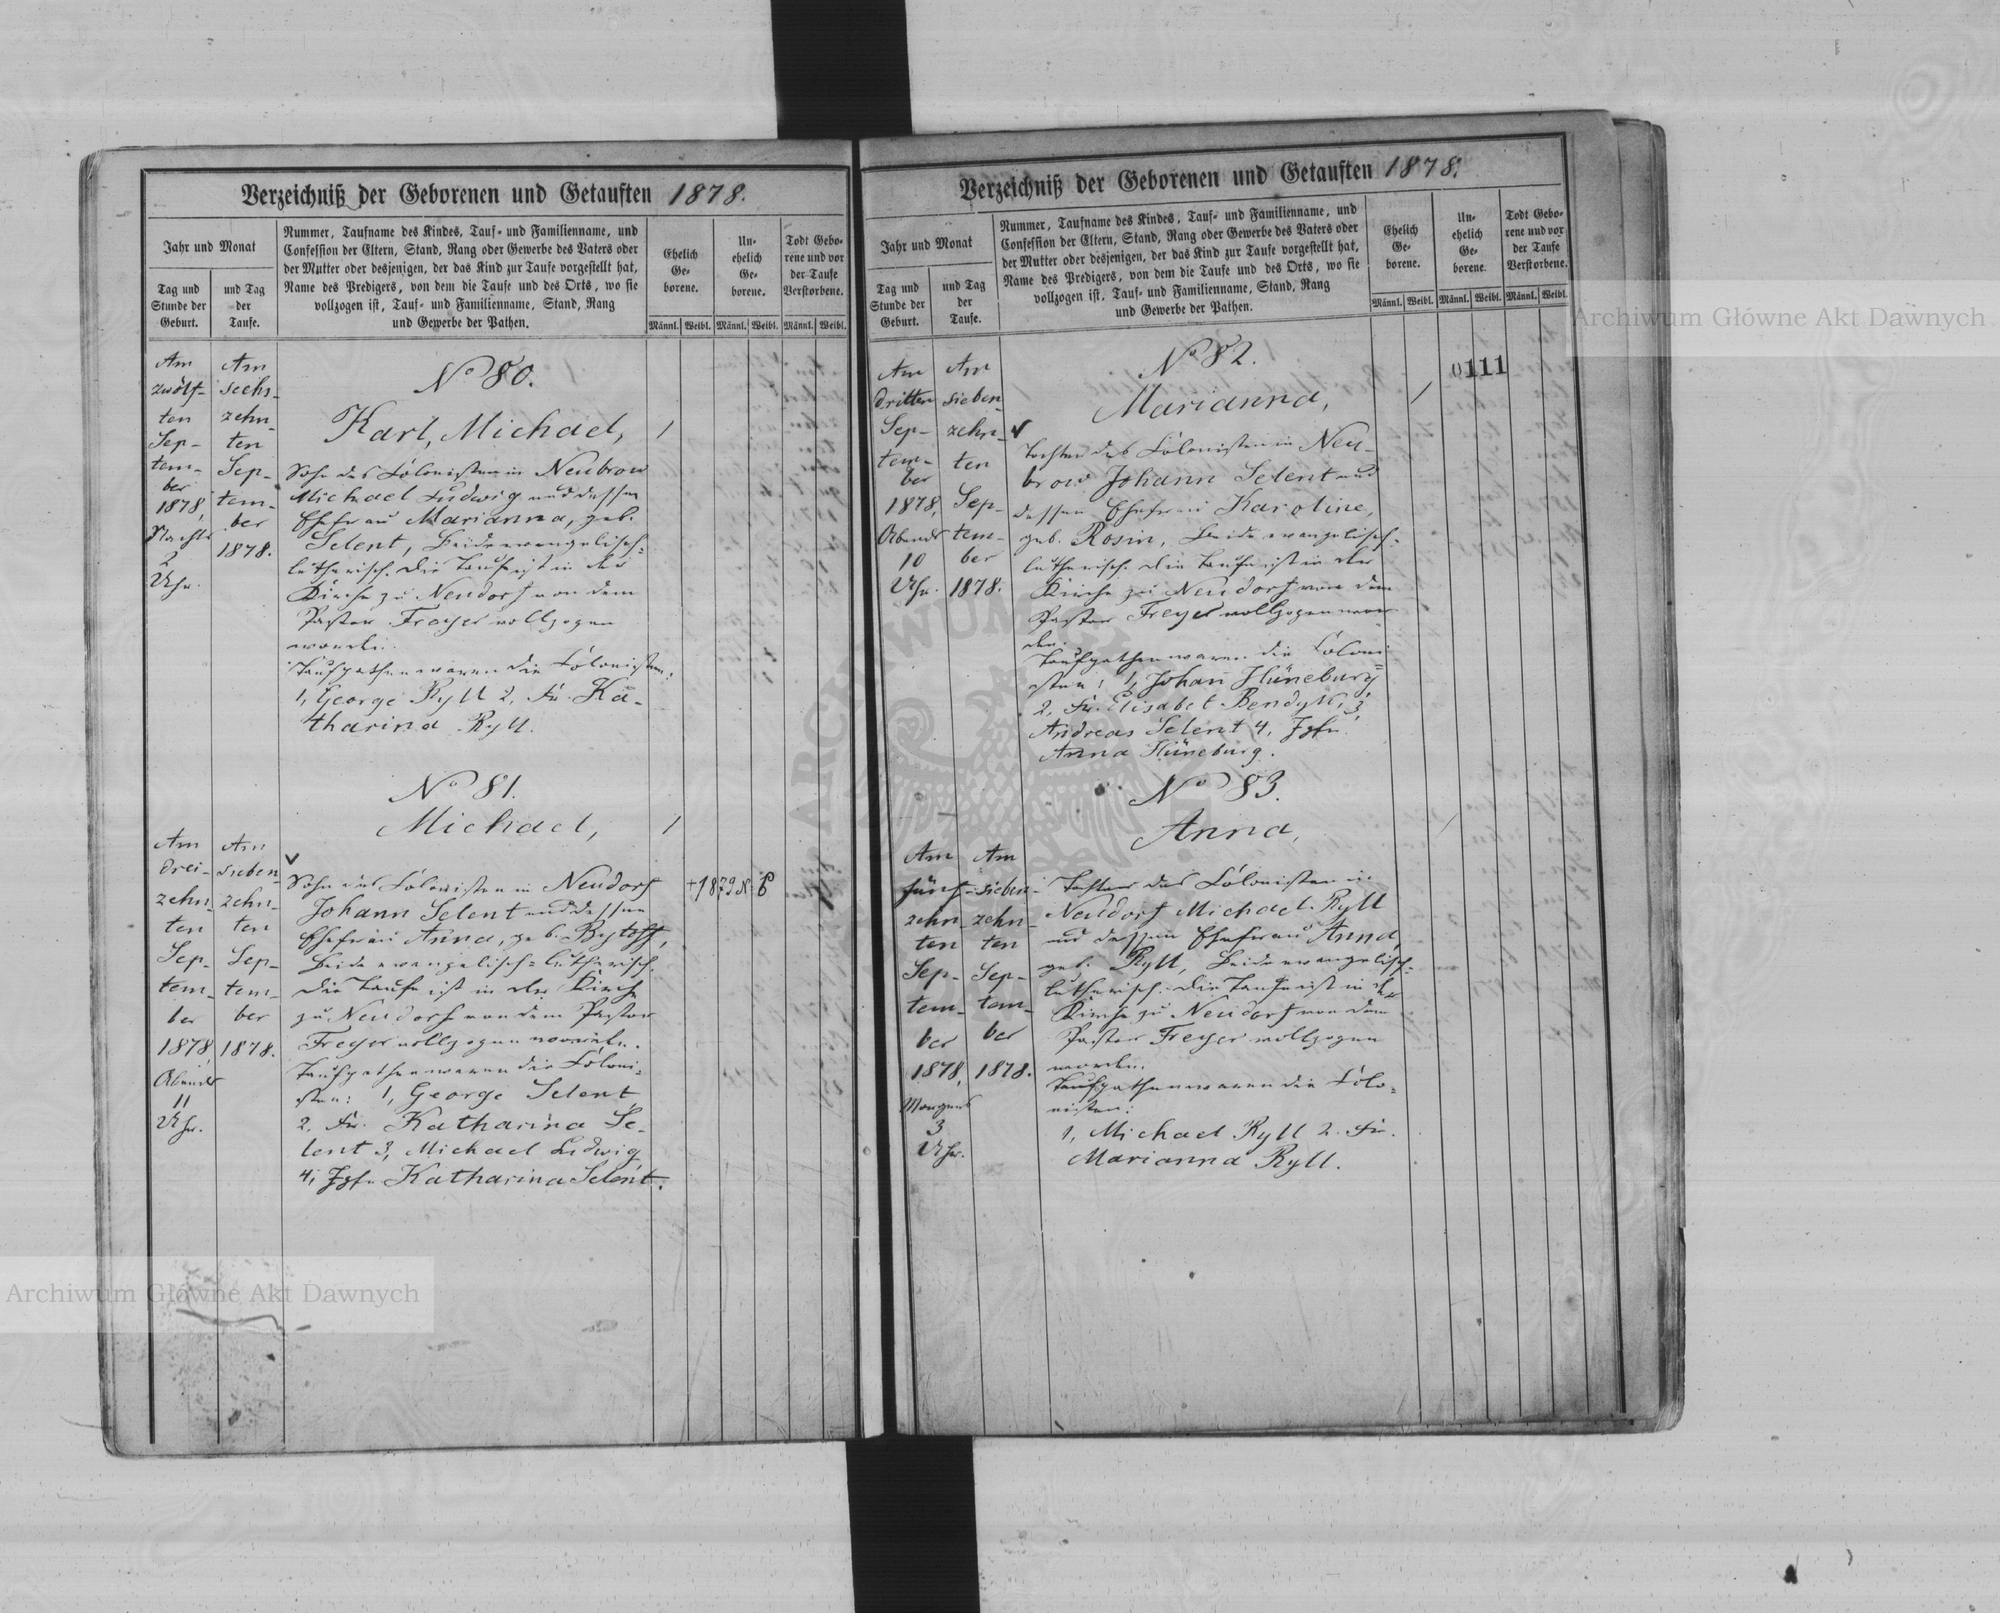 Verzeichniß der Geborenen und Getauften 1878.
Jahr und Monat
Tag und
Stunde der
Geburt.
und Tag
der
Taufe.
Nummer, Taufname des Kindes, Tauf- und Familienname, und
Confession der Eltern, Stand, Rang oder Gewerbe des Vaters oder
der Mutter oder desjenigen, der das Kind zur Taufe vorgestellt hat,
Name des Predigers, von dem die Taufe und des Orts, wo sie
vollzogen ist, Tauf- und Familienname, Stand, Rang
und Gewerbe der Pathen.
Ehelich
Ge-
borene.
Un-
ehelich
Ge-
borene.
Todt Gebo-
rene und vor
der Taufe
Verstorbene.
Männl. Weibl. Männl. Weibl. Männl. Weibl.
Am
zwölf-
ten
Sep-
tem-
ber
1878,
Nachts
2
Uhr.
Am
sechs-
zehn-
ten
Sep-
tem-
ber
1878.
No 80.
Karl, Michael,
1
Sohn des Colonisten in Neubrow
Michael Ludwig und dessen
Ehefrau Marianna, geb.
Selent, Beide evangelisch-
lutherisch. Die Taufe ist in der
Kirche zu Neudorf von dem
Pastor Freyer vollzogen
worden.
Taufpathen waren die Colonisten:
1, George Ryll 2, Fr. Ka-
tharina Ryll.
Am
drei-
zehn-
ten
Sep-
tem-
ber
1878,
Abends
11
Uhr.
Am
sieben-
zehn-
ten
Sep-
tem-
ber
1878.
No 81.
Michael,
1
Sohn des Colonisten in Neudorf
Johann Selent und dessen
Ehefrau Anna, geb.
Beide evangelisch-lutherisch.
Die Taufe ist in der Kirche
zu Neudorf von dem Pastor
Freyer vollzogen worden.
Taufpathen waren die Coloni-
sten: 1, George Selent
2, Fr. Katharina Se-
lent 3, Michael Ludwig
4, Jgfr. Katharina Selent.
+1879 N 6
Verzeichniß der Geborenen und Getauften 1878.
Jahr und Monat
Tag und
Stunde der
Geburt.
und Tag
der
Taufe.
Nummer, Taufname des Kindes, Tauf- und Familienname, und
Confession der Eltern, Stand, Rang oder Gewerbe des Vaters oder
der Mutter oder desjenigen, der das Kind zur Taufe vorgestellt hat,
Name des Predigers, von dem die Taufe und des Orts, wo sie
vollzogen ist, Tauf- und Familienname, Stand, Rang
und Gewerbe der Pathen.
Ehelich
Ge-
borene.
Un-
ehelich
Ge-
borene.
Todt Gebo-
rene und vor
der Taufe
Verstorbene.
Männl. Weibl. Männl. Weibl. Männl. Weibl.
0111
Am
dritten
Sep-
tem-
ber
1878,
Abends
10
Uhr.
Am
sieben-
zehn-
ten
Sep-
tem-
ber
1878.
No 82.
Marianna,
1
Tochter des Colonisten in Neu-
brow Johann Selent und
dessen Ehefrau Karoline,
geb. Rosin, Beide evangelisch-
lutherisch. Die Taufe ist in der
Kirche zu Neudorf von dem
Pastor Freyer vollzogen wor-
den.
Taufpathen waren die Coloni-
sten: 1, Johan Hüneburg
2, Fr. Elisabet Bendyk, 3,
Andreas Selent 4, Jgfr.
Anna Hüneburg.
Am
fünf-
zehn-
ten
Sep-
tem-
ber
1878,
Morgens
3
Uhr.
Am
sieben-
zehn-
ten
Sep-
tem-
ber
1878.
No 83.
Anna,
1
Tochter des Colonisten in
Neudorf Michael Ryll
und dessen Ehefrau Anna,
geb. Ryll, Beide evangelisch-
lutherisch. Die Taufe ist in der
Kirche zu Neudorf von dem
Pastor Freyer vollzogen
worden.
Taufpathen waren die Colo-
nisten:
1, Michael Ryll 2. Fr.
Marianna Ryll.
Archiwum Główne Akt Dawnych
Archiwum Główne Akt Dawnych